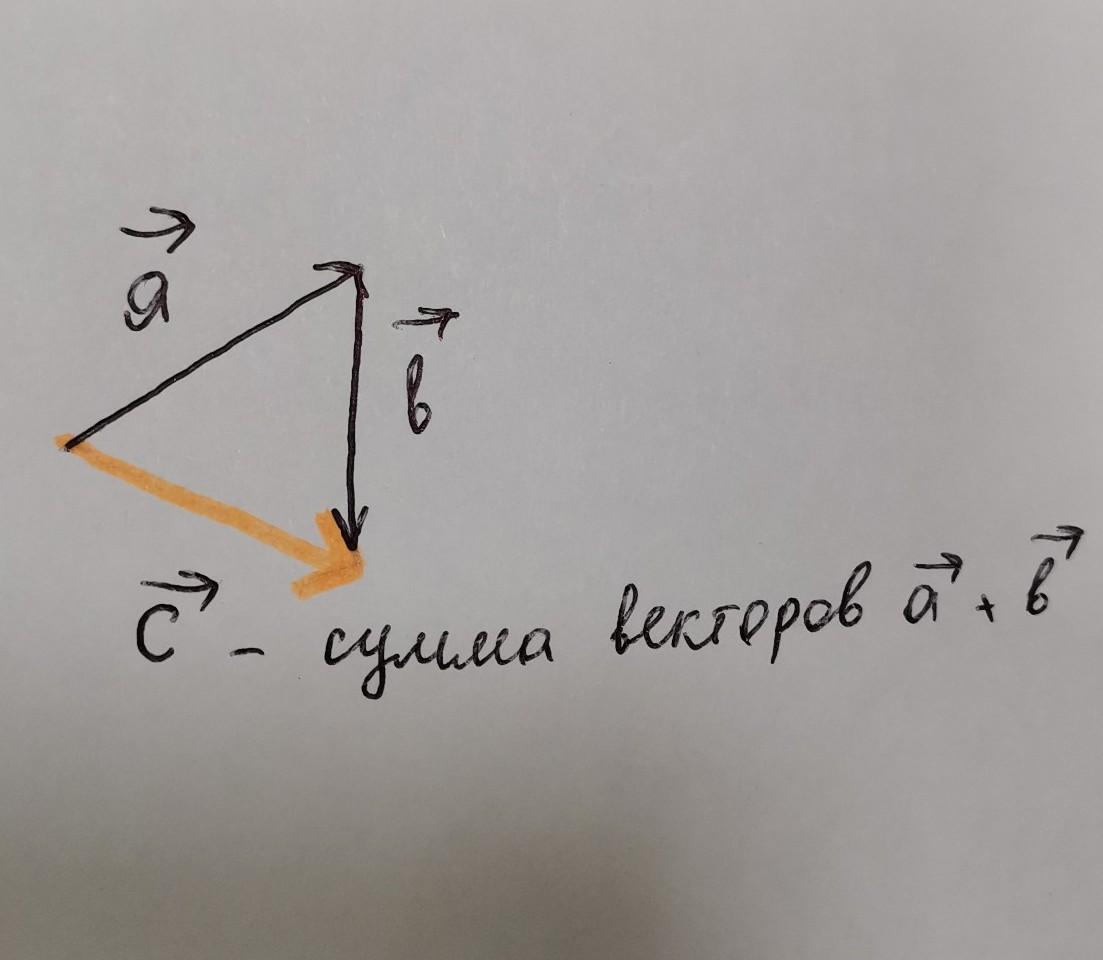 a⃗
b⃗
c⃗ - сумма векторов a⃗ + b⃗